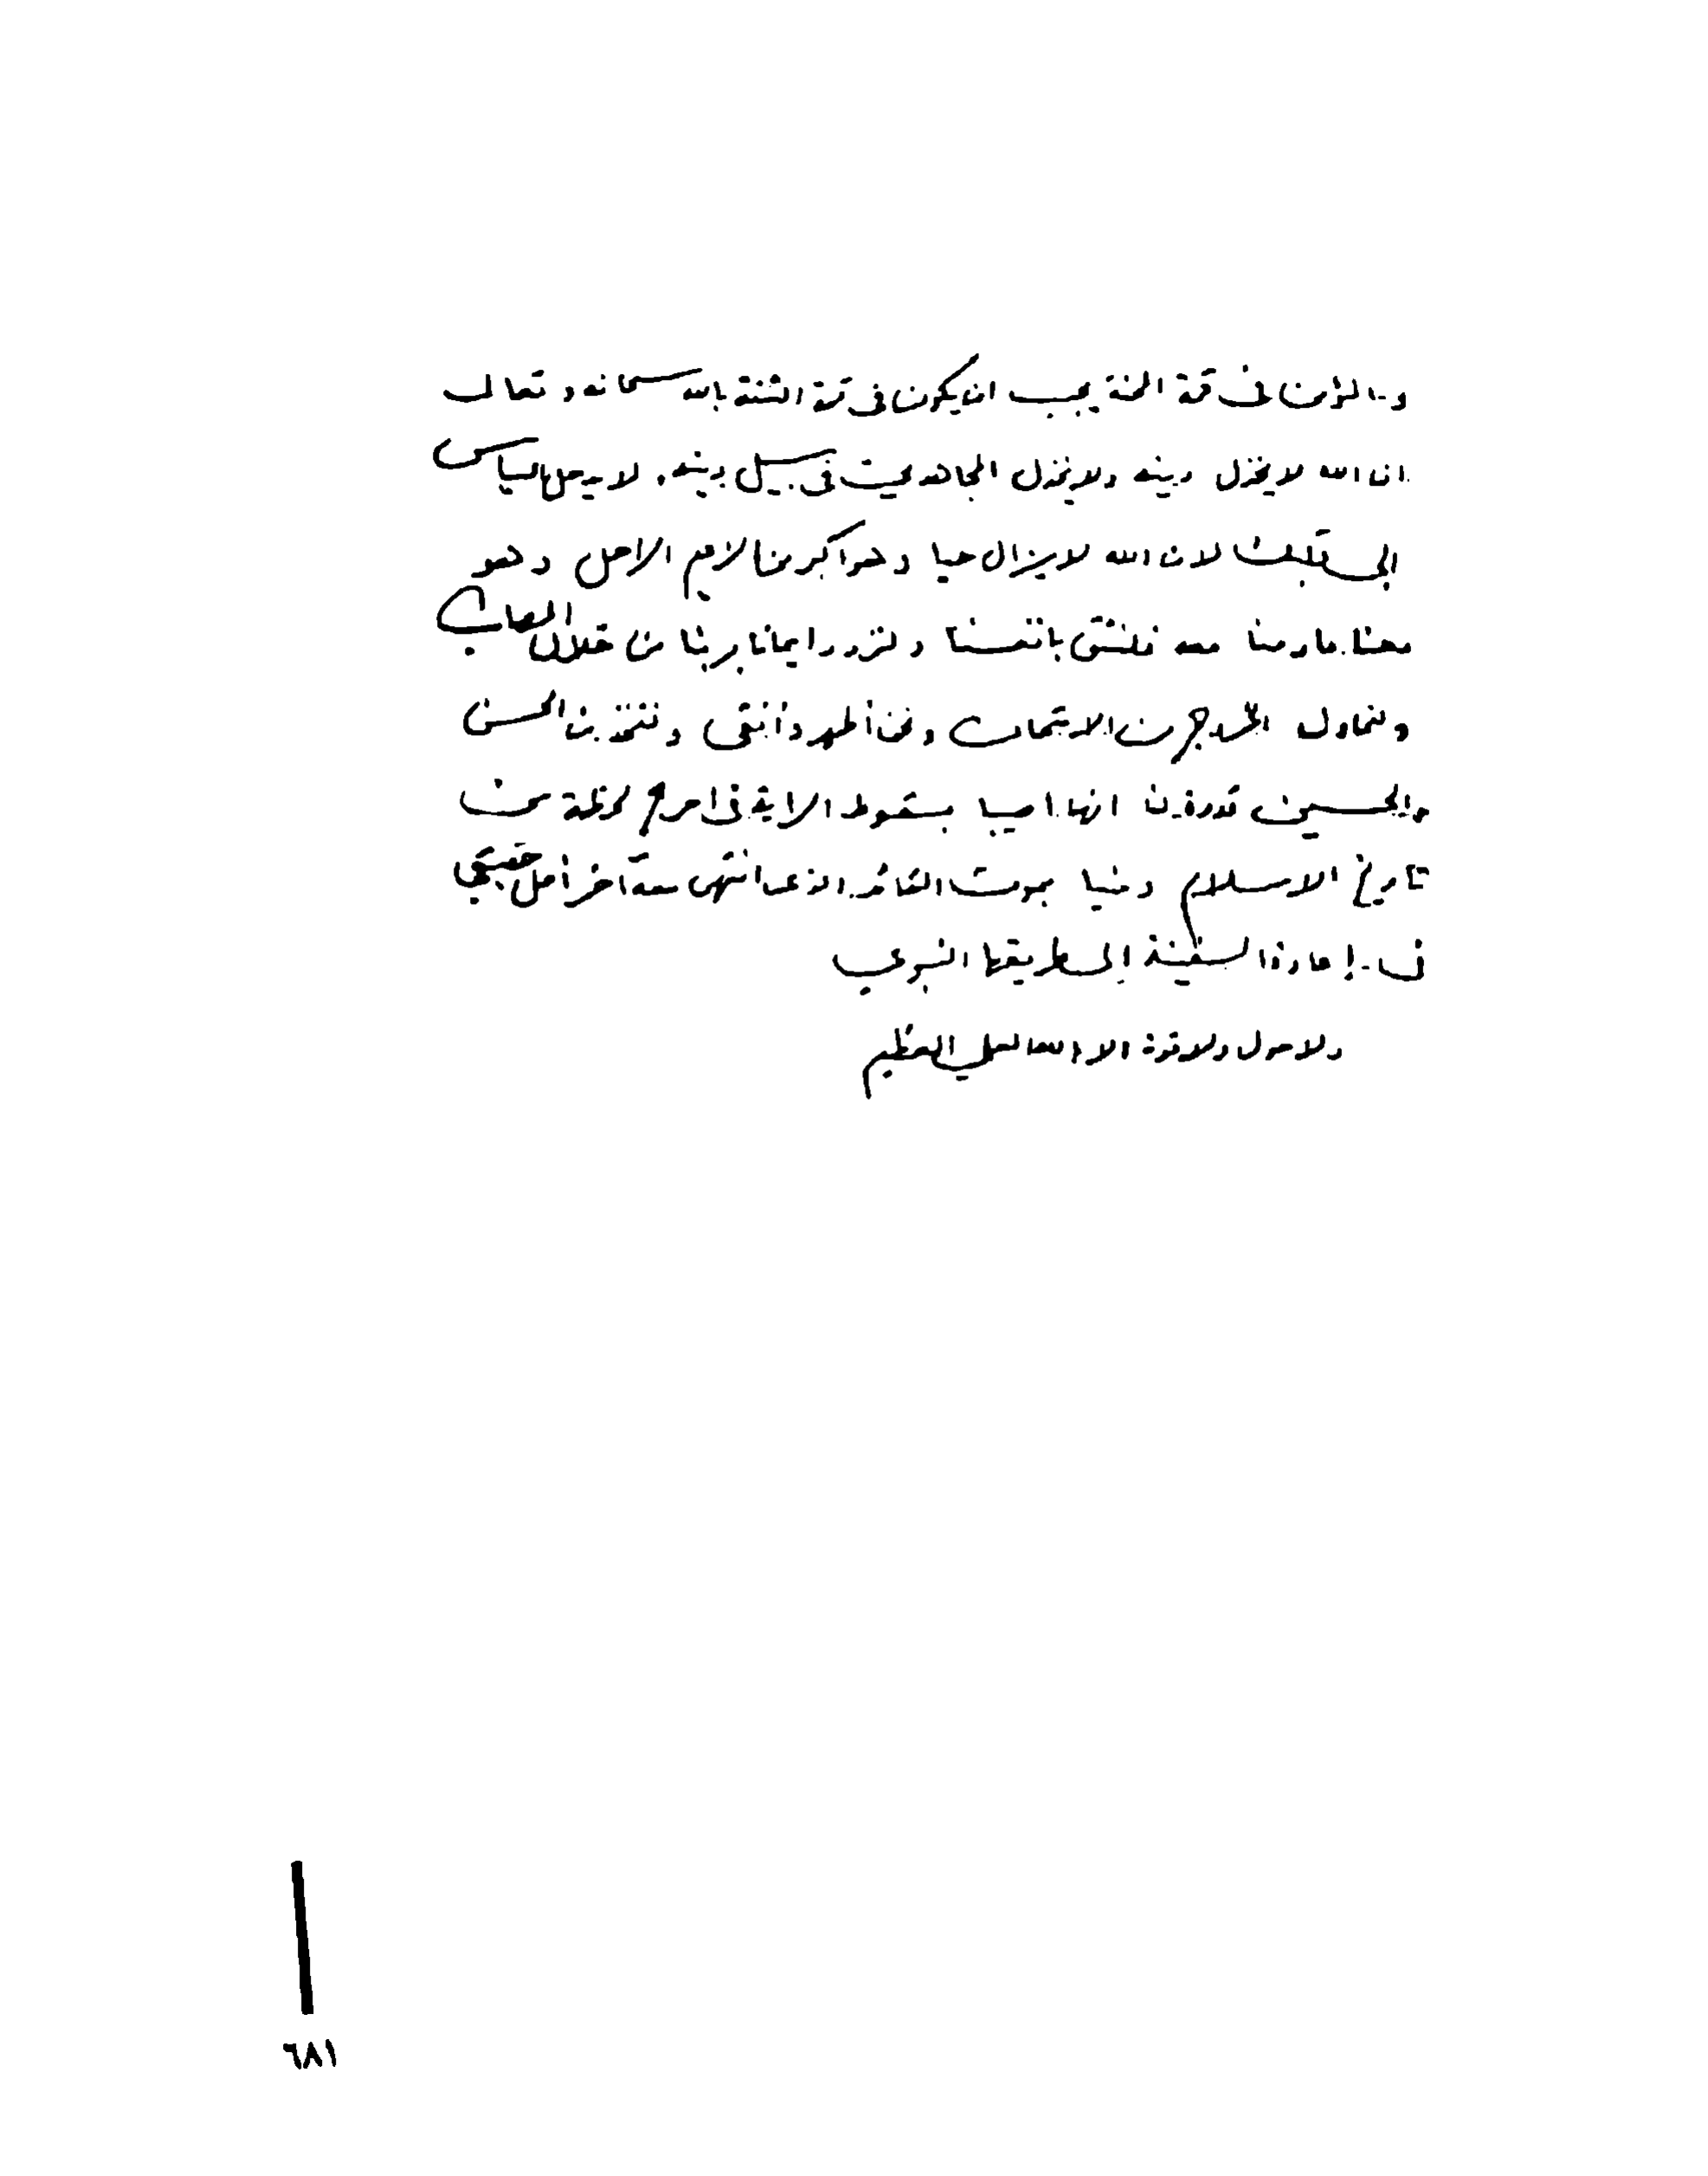 و المؤمن في قمة المحنة يجب ان يكون في قمة الثقة بالله سبحانه وتعالى
ان الله لا يخذل دينه ولا يخذل المجاهد يحيت في سبيل دينه. لا يدخل اليأس
الى قلبك لان الله لا يزال حيا وهو اكبر من الزعيم الراحل وهو
معنا ما دمنا معه فلنثق بانفسنا ولنزدد ايمانا بربنا من خلال المصاب
ولنحاول الخروج من الامتحان ونحن أطهر وأنقى ونتخذ من الحسن
والحسين قدوة لنا انهما اصيبا بسقوط الراية في احرج لحظة من
تاريخ الاسلام ومنيا بموت القائد الذي انتهى معه آخر أمل حقيقي
في إعادة السفينة الى طريقها النبوي
ولا حول ولا قوة الا بالله العلي العظيم
٦٨١